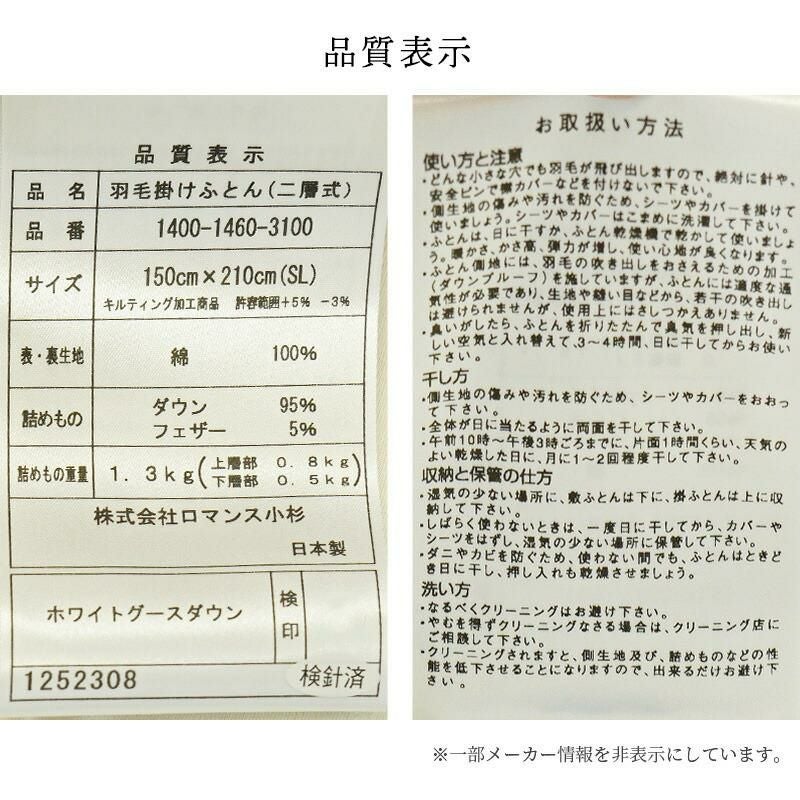 品質表示
品質表示
品 名 羽毛掛けふとん(二層式)
品 番 1400-1460-3100
サイズ 150cm×210cm(SL)
キルティング加工商品 許容範囲+5% -3%
表・裏生地 綿 100%
詰めもの ダウン 95%
フェザー 5%
詰めもの重量 1.3kg(上層部 0.8kg
下層部 0.5kg)
株式会社ロマンス小杉
日本製
ホワイトグースダウン 検印
1252308 検針済
お取扱い方法
使い方と注意
・どんな小さな穴でも羽毛が飛び出しますので、絶対に針や、
安全ピンで襟カバーなどを付けないで下さい。
・側生地の傷みや汚れを防ぐため、シーツやカバーを掛けて
使いましょう。シーツやカバーはこまめに洗濯して下さい。
・ふとんは、日に干すか、ふとん乾燥機で乾かして使いましょ
う。暖かさ、かさ高、弾力が増し、使い心地が良くなります。
・ふとん側地には、羽毛の吹き出しをおさえるための加工
(ダウンプルーフ)を施していますが、ふとんには適度な通
気性が必要であり、生地や縫い目などから、若干の吹き出し
は避けられませんが、使用上にはさしつかえありません。
・臭いがしたら、ふとんを折りたたんで臭気を押し出し、新
しい空気と入れ替えて、3~4時間、日に干してからお使い
下さい。
干し方
・側生地の傷みや汚れを防ぐため、シーツやカバーをおおっ
て下さい。
・全体が日に当たるように両面を干して下さい。
・午前10時~午後3時ごろまでに、片面1時間くらい、天気の
よい乾燥した日に、月に1~2回程度干して下さい。
収納と保管の仕方
・湿気の少ない場所に、敷ふとんは下に、掛ふとんは上に収
納して下さい。
・しばらく使わないときは、一度日に干してから、カバーや
シーツをはずし、湿気の少ない場所に保管して下さい。
・ダニやカビを防ぐため、使わない間でも、ふとんはときど
き日に干し、押し入れも乾燥させましょう。
洗い方
・なるべくクリーニングはお避け下さい。
・やむを得ずクリーニングなさる場合は、クリーニング店に
ご相談して下さい。
・クリーニングされますと、側生地及び、詰めものなどの性
能を低下させることになりますので、出来るだけお避け下さ
い。
※一部メーカー情報を非表示にしています。